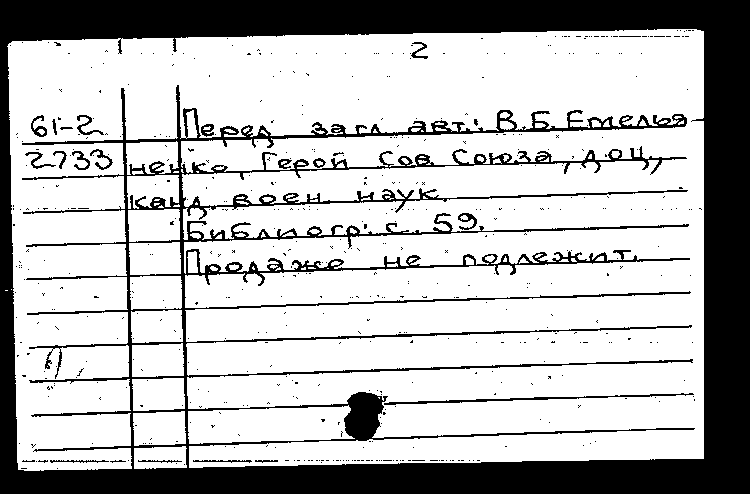 2
61-2 Перед загл. авт.: В.Б. Емелья-
2733 ненко, Герой Сов. Союза, доц.,
канд. воен. наук.
Библиогр.: с. 59.
Продаже не подлежит.